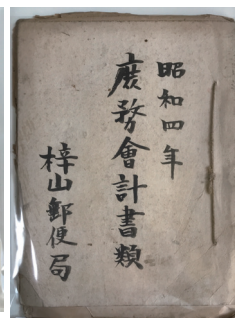 昭和四年
庶務會計書類
梓山郵便局